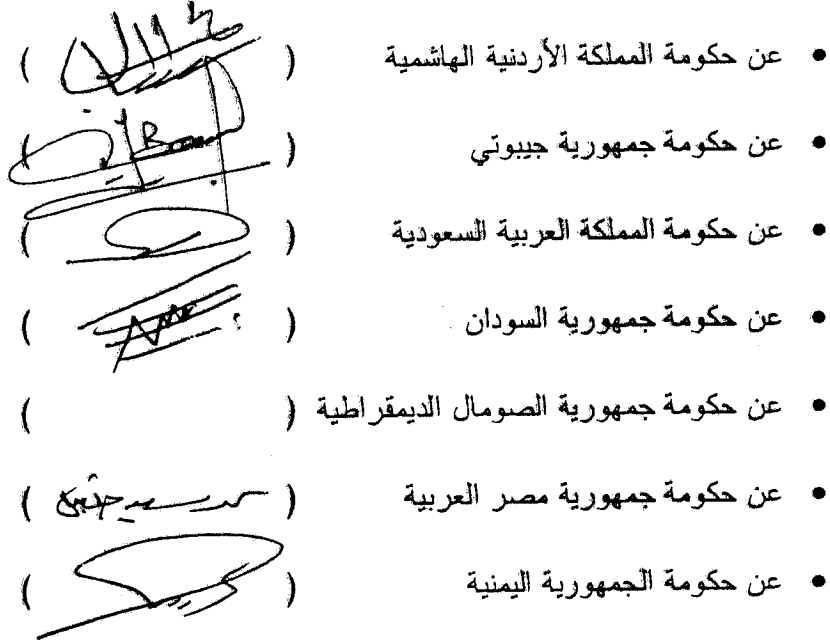 • عن حكومة المملكة الأردنية الهاشمية ( )
• عن حكومة جمهورية جيبوتي ( )
• عن حكومة المملكة العربية السعودية ( )
• عن حكومة جمهورية السودان ( )
• عن حكومة جمهورية الصومال الديمقراطية ( )
• عن حكومة جمهورية مصر العربية ( )
• عن حكومة الجمهورية اليمنية ( )